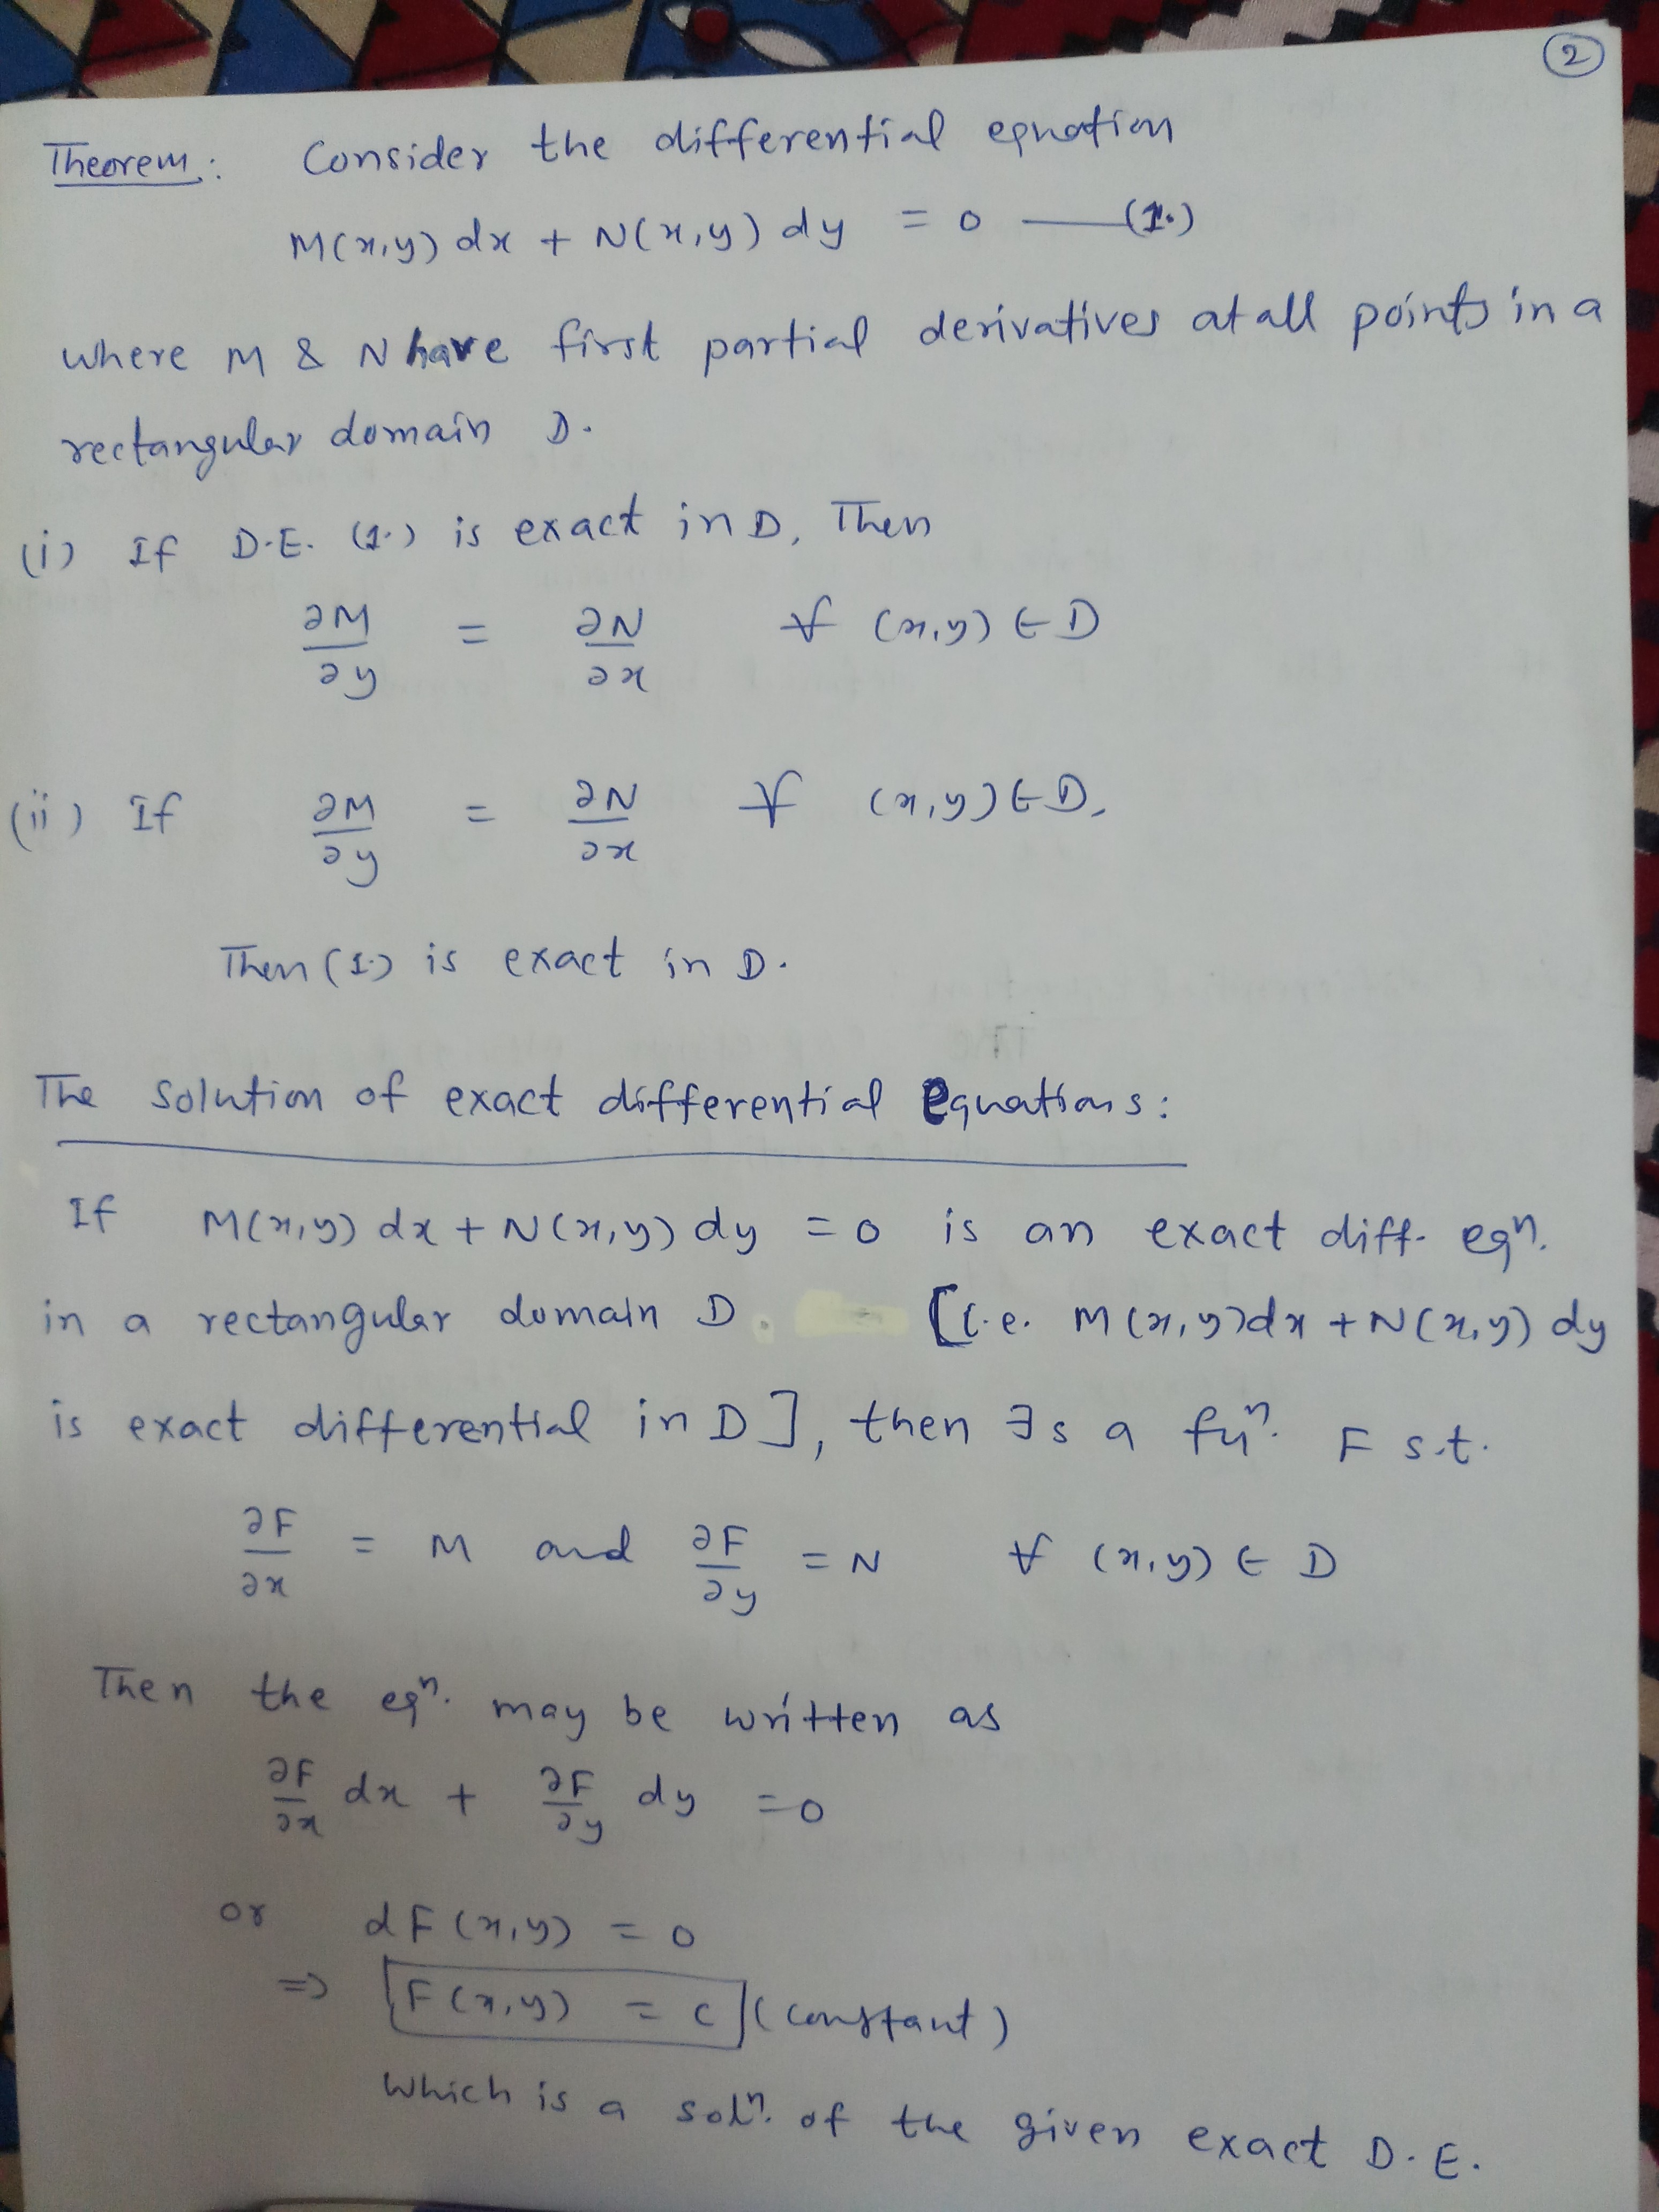 2
Theorem: Consider the differential equation
M(x,y) dx + N(x,y) dy = 0 —(1.)
where M & N have first partial derivatives at all points in a
rectangular domain D.
(i) If D.E. (1.) is exact in D, Then
∂M/∂y = ∂N/∂x ∀ (x,y) ∈ D
(ii) If ∂M/∂y = ∂N/∂x ∀ (x,y) ∈ D,
Then (1.) is exact in D.
The solution of exact differential Equations:
If M(x,y) dx + N(x,y) dy = 0 is an exact diff. eqⁿ.
in a rectangular domain D. [i.e. M(x,y)dx + N(x,y) dy
is exact differential in D], then ∃s a fuⁿ. F s.t.
∂F/∂x = M and ∂F/∂y = N ∀ (x,y) ∈ D
Then the eqⁿ. may be written as
∂F/∂x dx + ∂F/∂y dy = 0
or dF(x,y) = 0
=> F(x,y) = c (constant)
Which is a solⁿ. of the given exact D.E.